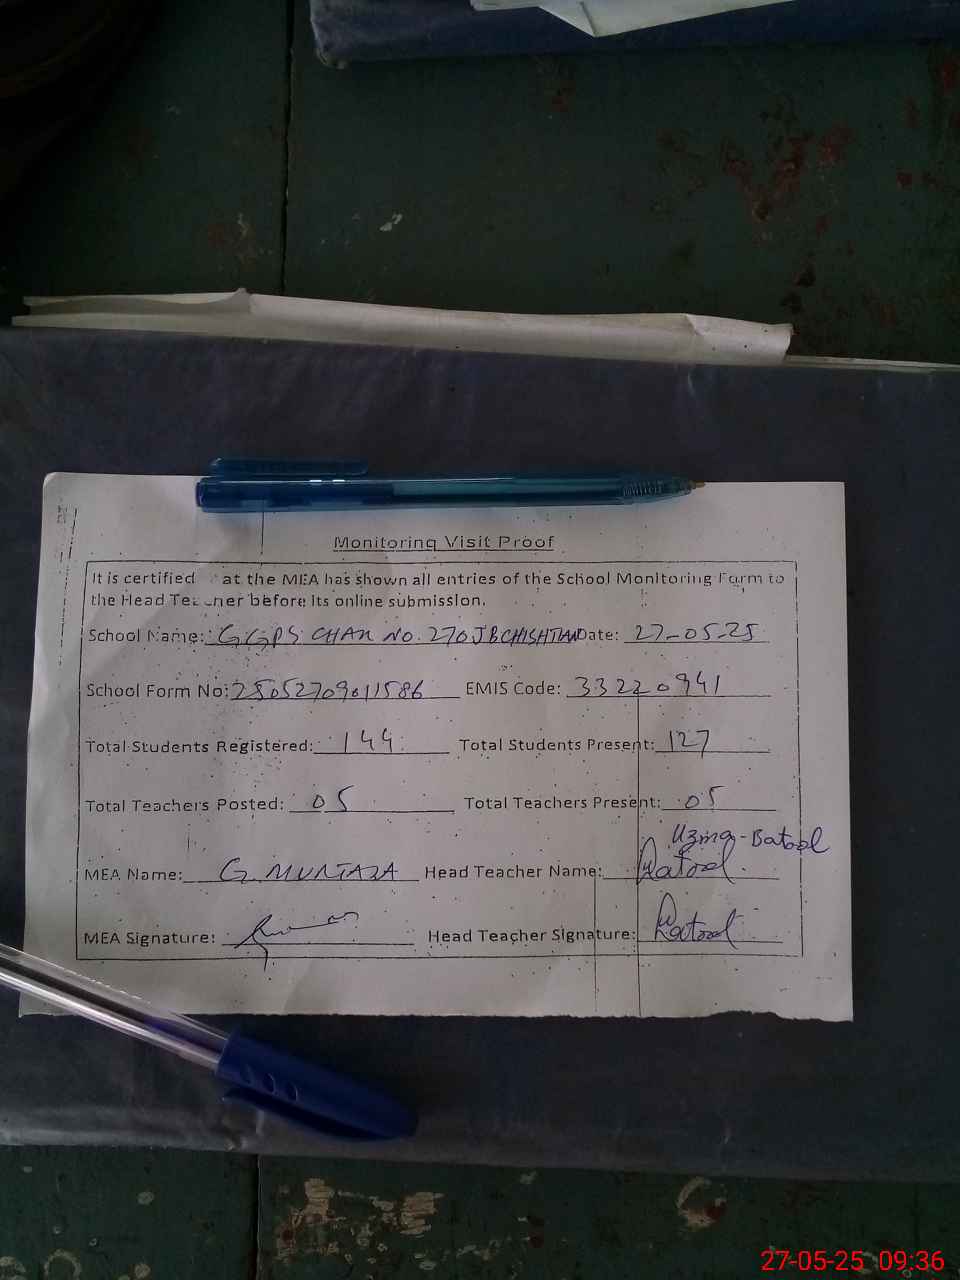 Monitoring Visit Proof
It is certified at the MEA has shown all entries of the School Monitoring Form to
the Head Teacher before its online submission.
School Name: GGPS CHAK NO. 270 JB CHISHTIAN Date: 27-05-25
School Form No: 25052709011586 EMIS Code: 33220941
Total Students Registered: 144 Total Students Present: 127
Total Teachers Posted: 05 Total Teachers Present: 05
Uzma-Batool
MEA Name: G. MURTAZA Head Teacher Name: Batool
MEA Signature: Head Teacher Signature: Batool
27-05-25 09:36